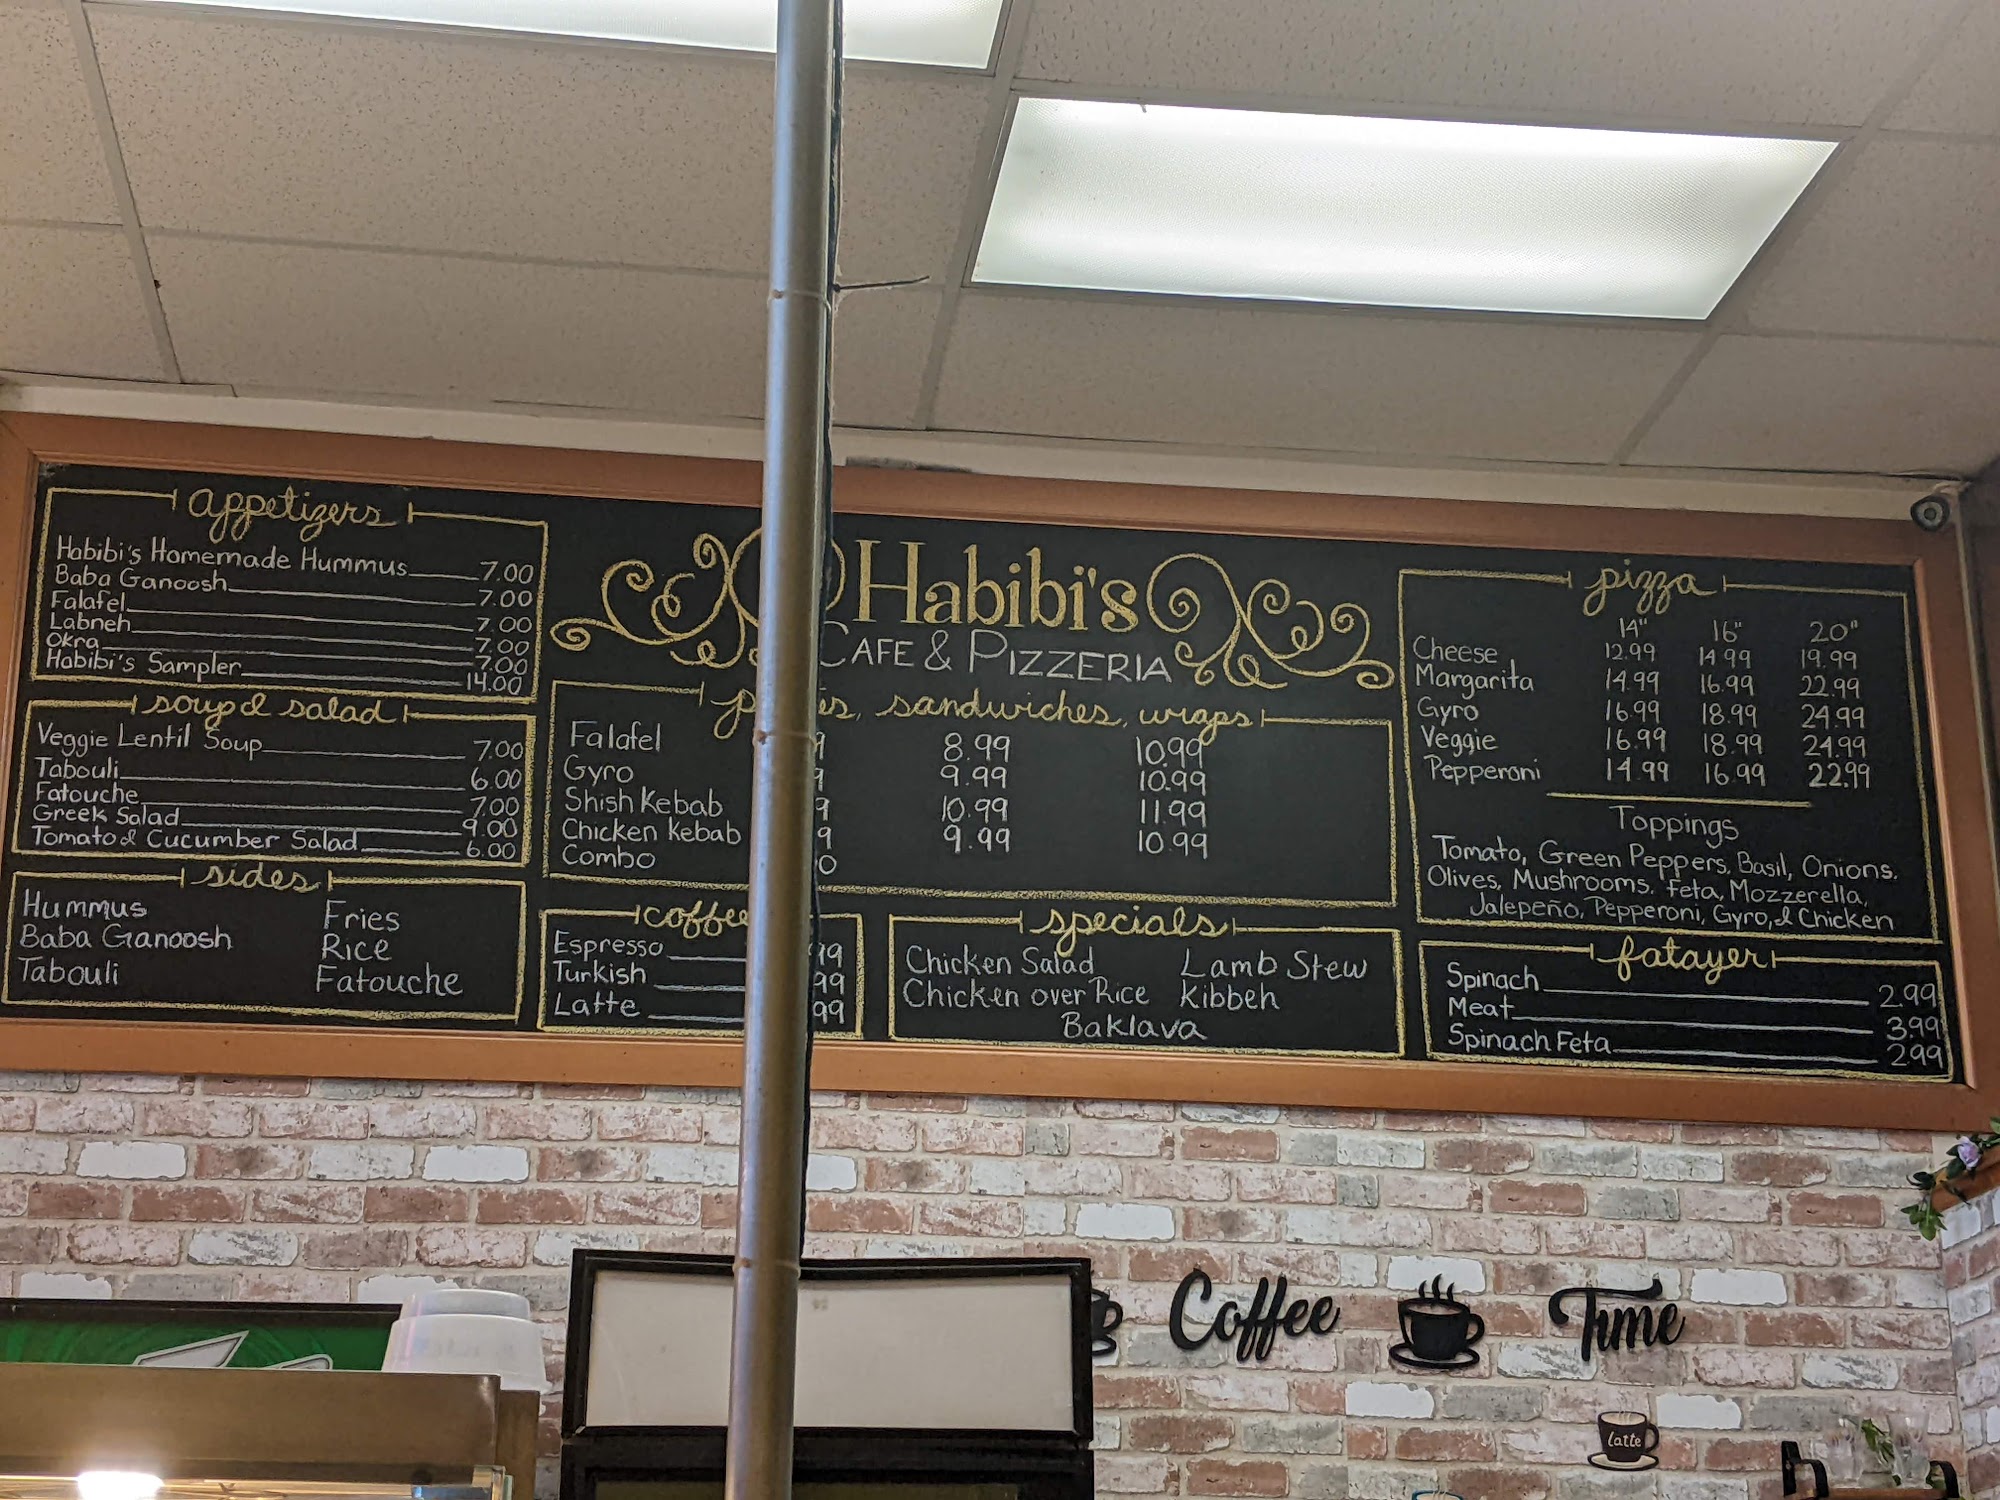 appetizers
Habibi's Homemade Hummus 7.00
Baba Ganoosh 7.00
Falafel 7.00
Labneh 7.00
Okra 7.00
Habibi's Sampler 14.00
soup & salad
Veggie Lentil Soup 7.00
Tabouli 6.00
Fatouche 7.00
Greek Salad 9.00
Tomato & Cucumber Salad 6.00
sides
Hummus Fries
Baba Ganoosh Rice
Tabouli Fatouche
Habibi's
CAFE & PIZZERIA
sandwiches, wraps
Falafel 8.99 10.99
Gyro 9.99 10.99
Shish Kebab 10.99 11.99
Chicken Kebab 9.99 10.99
Combo
coffee
Espresso
Turkish
Latte
specials
Chicken Salad Lamb Stew
Chicken over Rice Kibbeh
Baklava
pizza
14" 16" 20"
Cheese 12.99 14.99 19.99
Margarita 14.99 16.99 22.99
Gyro 16.99 18.99 24.99
Veggie 16.99 18.99 24.99
Pepperoni 14.99 16.99 22.99
Toppings
Tomato, Green Peppers, Basil, Onions,
Olives, Mushrooms, Feta, Mozzerella,
Jalepeño, Pepperoni, Gyro, & Chicken
fatayer
Spinach 2.99
Meat 3.99
Spinach Feta 2.99
Coffee Time
latte